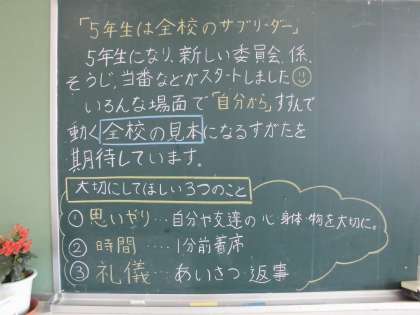 「5年生は全校のサブリーダー」
5年生になり、新しい委員会、係、
そうじ、当番などがスタートしました
いろんな場面で「自分から」すすんで
動く全校の見本になるすがたを
期待しています。
大切にしてほしい3つのこと
①思いやり…自分や友達の心・身体・物を大切に。
②時間‥‥1分前着席
③礼儀…あいさつ 返事